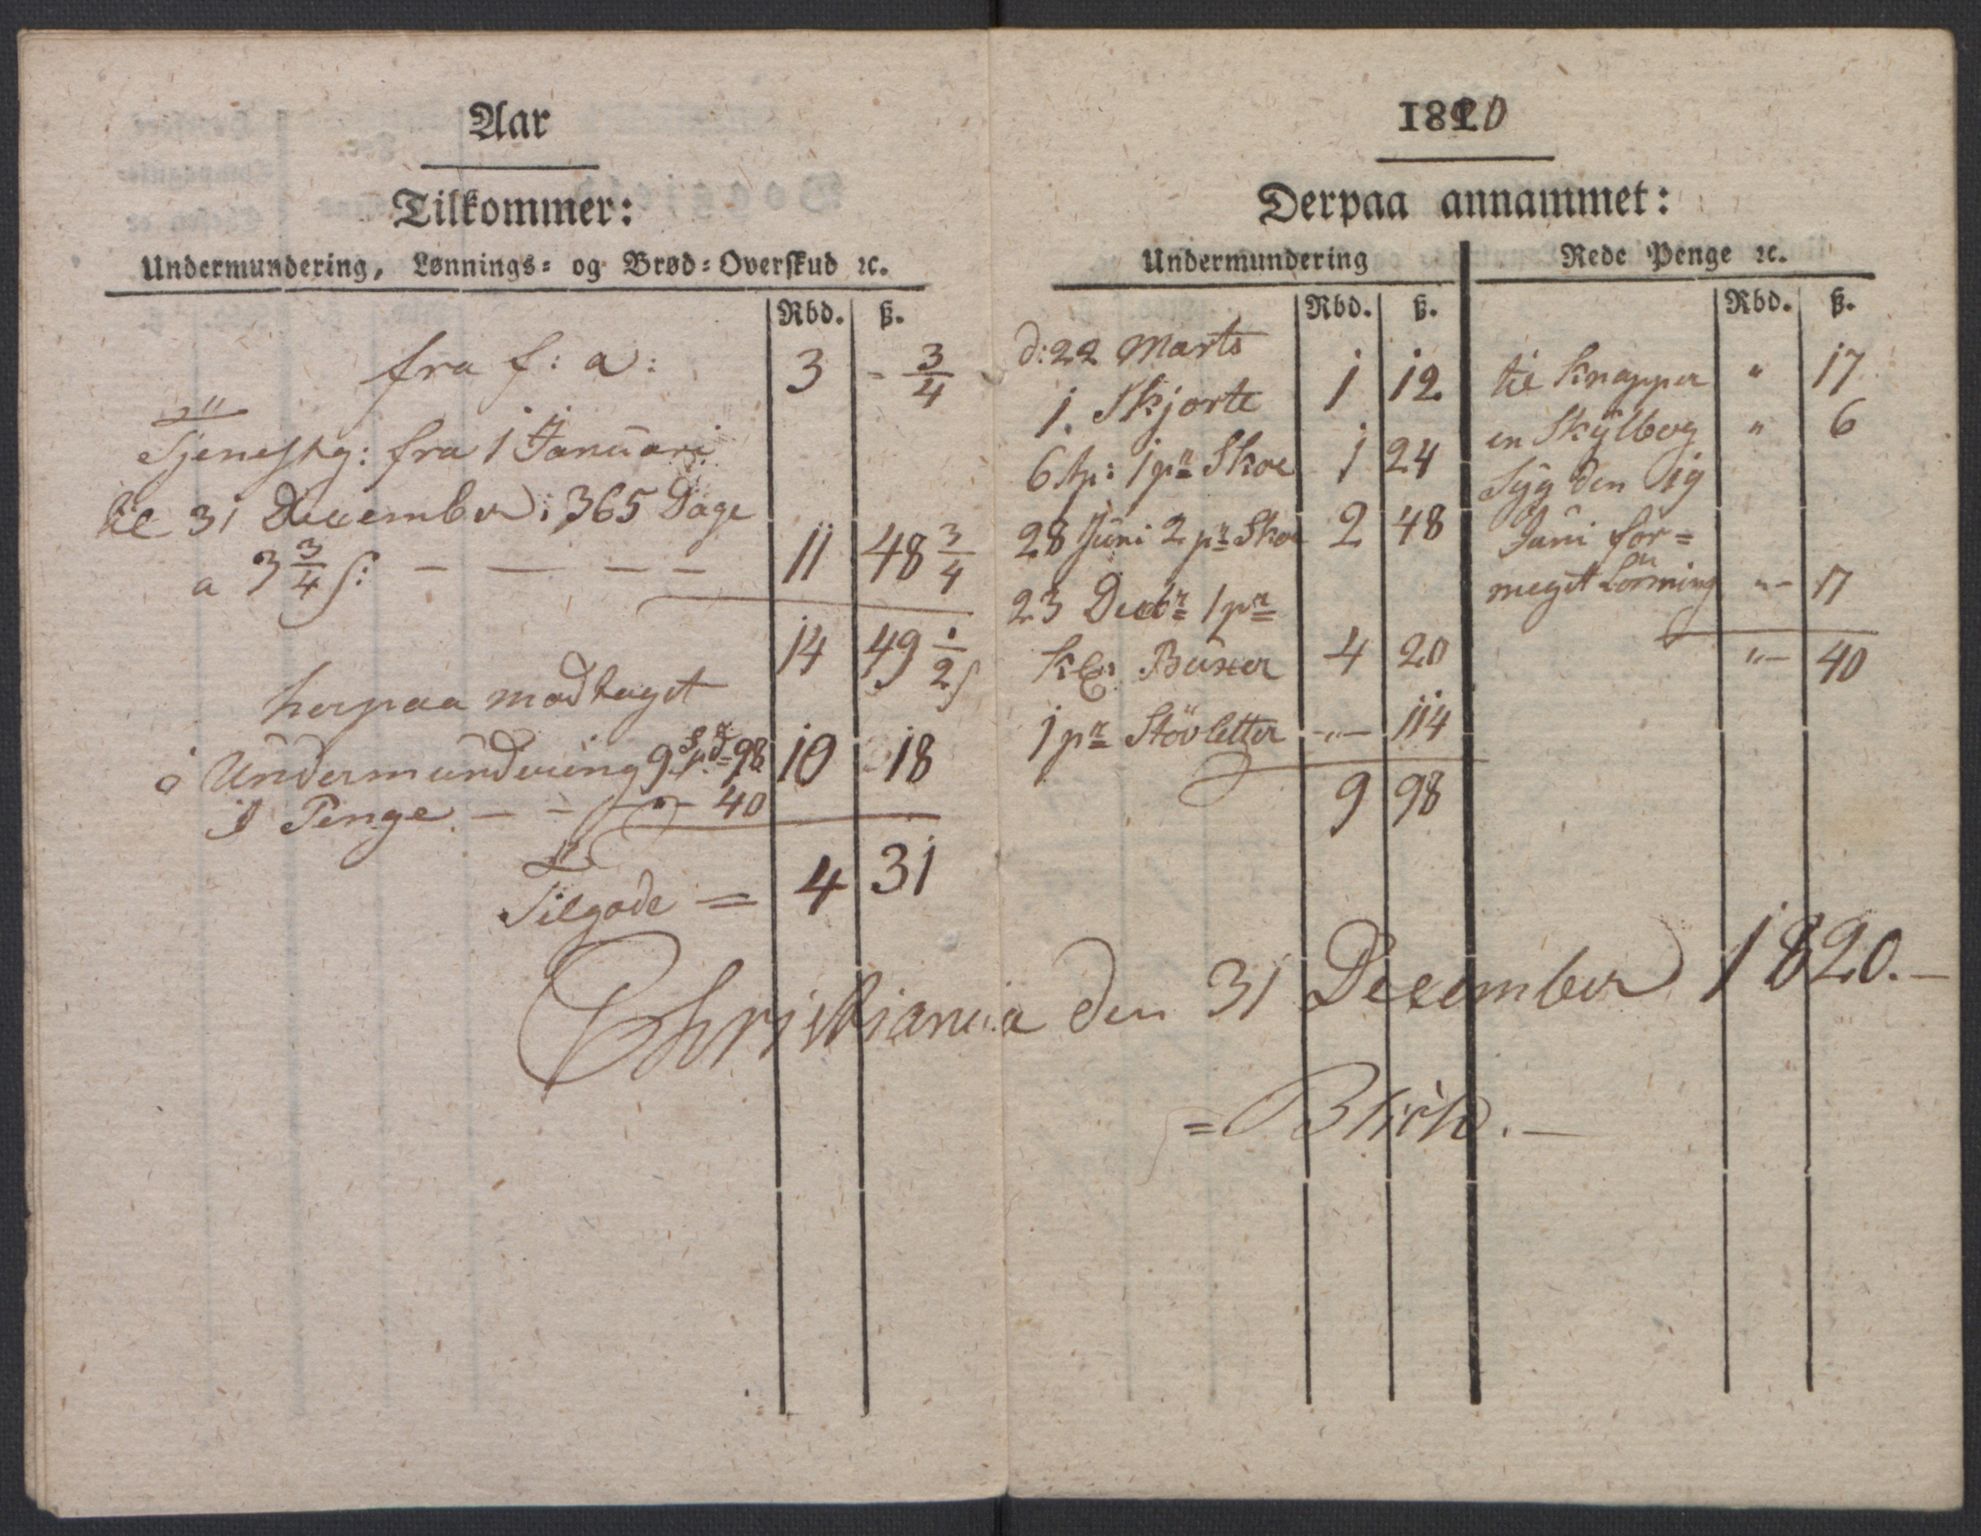 Aar
Tilkommer:
Undermundering, Lønnings= og Brød=Overskud ꝛc.
Rbd. ß.
fra f: a: 3 - 3/4
Tjenestg: fra 1 Januari
til 31 December: 365 Dage
a 3 3/4 ß: — — — — 11 48 3/4
14 49 1/2 ß
herpaa modtaget
i Undermundering 9 Spd 98 10 18
i Penge — — „— 40
Tilgode = 4 31
1820
Derpaa annammet:
Undermundering
Rbd. ß.
d: 22 Marts
1. Skjorte 1 12
6 Ap: 1 pr Skoe 1 24
28 Juni 2 pr Skoe 2 48
23 Decbr 1 pr
Kl: Buxer 4 20
1 pr Stövletter -„- 114
9 98
Rede Penge ꝛc.
Rbd. ß.
til Knapper „ 17
en Skÿlbog „ 6
Syg den 19
Juni for=
meget Lønning „- 17
„- 40
Christiania den 31 December 1820.—